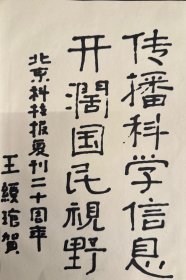 传播科学信息
开阔国民視野
北京科技报复刊二十周年
王绶琯贺